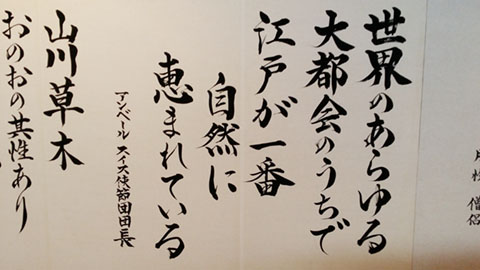 世界のあらゆる
大都会のうちで
江戸が一番
自然に
恵まれている
アンベール スイス使節団団長
山川草木
おのおの其性あり